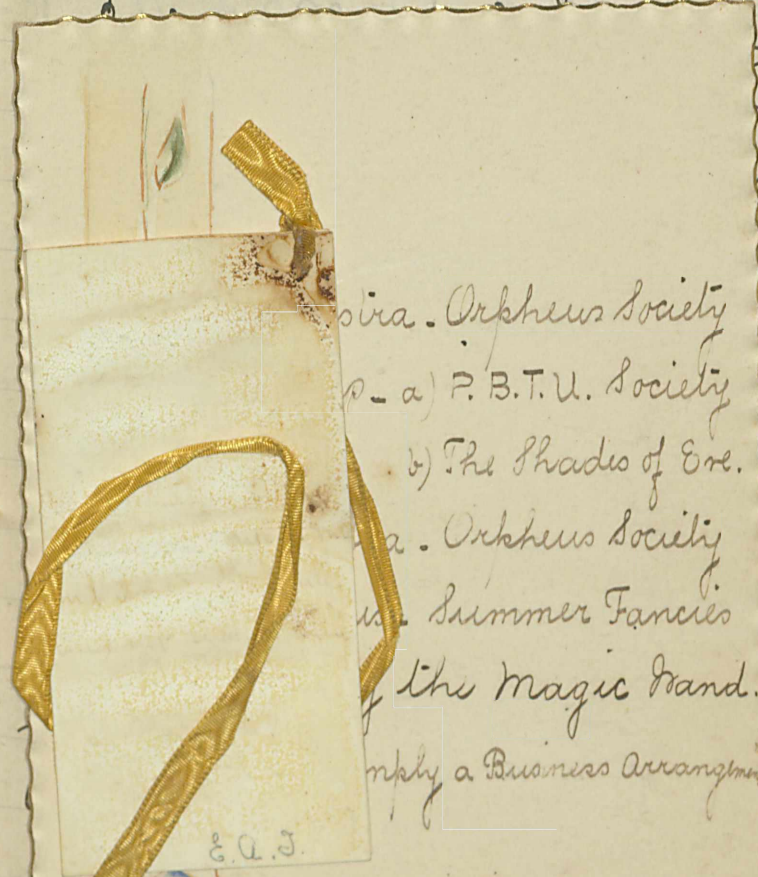 Orpheus Society
a) P.B.T.U. Society
b) The Shades of Eve.
Orpheus Society
Summer Fancies
the Magic Wand.
a Business Arrangemen
E.A.T.